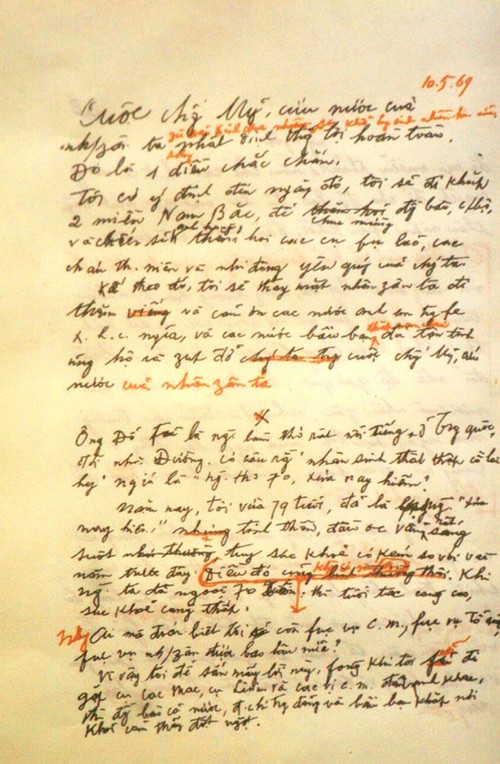 10.5.69
Cuộc chg Mỹ, cứu nước của
nh/zân ta
phất định thg lợi hoàn toàn.
Đó là 1 điều chắc chắn.
Tôi có ý định đến ngày đó, tôi sẽ đi khắp
2 miền Nam Bắc, để chúc mừng đg bào,
và chiến sĩ thăm hỏi các cụ fụ lão, các
cháu th. niên và nhi đồng yêu quý của chg ta.
Kế theo đó, tôi sẽ thay mặt nhân zân ta đi
thăm và cảm ơn các nước anh em trg fe
x. h. c. nghĩa, và các nước bầu bạn đã tận tình
ủng hộ và zúp đỡ cuộc chg Mỹ, cứu
nước của nhân zân ta
X
Ông Đỗ Fủ là ng làm thơ rất nổi tiếng ở Trg quốc,
đời nhà Đường, có câu rằng "nhân sinh thất thập cổ lai
hy" nghĩa là "ng thọ 70, xưa nay hiếm".
Năm nay, tôi vừa 79 tuổi, đã là "xưa
nay hiếm" nhưng tinh thần, đầu óc vẫn rất sáng
suốt, tuy sức khoẻ có kém so với vài
năm trước đây. Khi
ng ta đã ngoài 70 xuân, thì tuổi tác càng cao,
sức khoẻ càng thấp.
Ai mà đoán biết tôi còn fục vụ c. m., fục vụ Tổ quốc,
fục vụ nh/zân được bao lâu nữa?
Vì vậy tôi để sẵn mấy lời này, fòng khi tôi sẽ đi
gặp cụ Các Mác, cụ Lênin và các vị c. m. đàn anh khác,
thì đg bào cả nước, đ. chí trg đảng và bầu bạn khắp nơi
khỏi cảm thấy đột ngột.